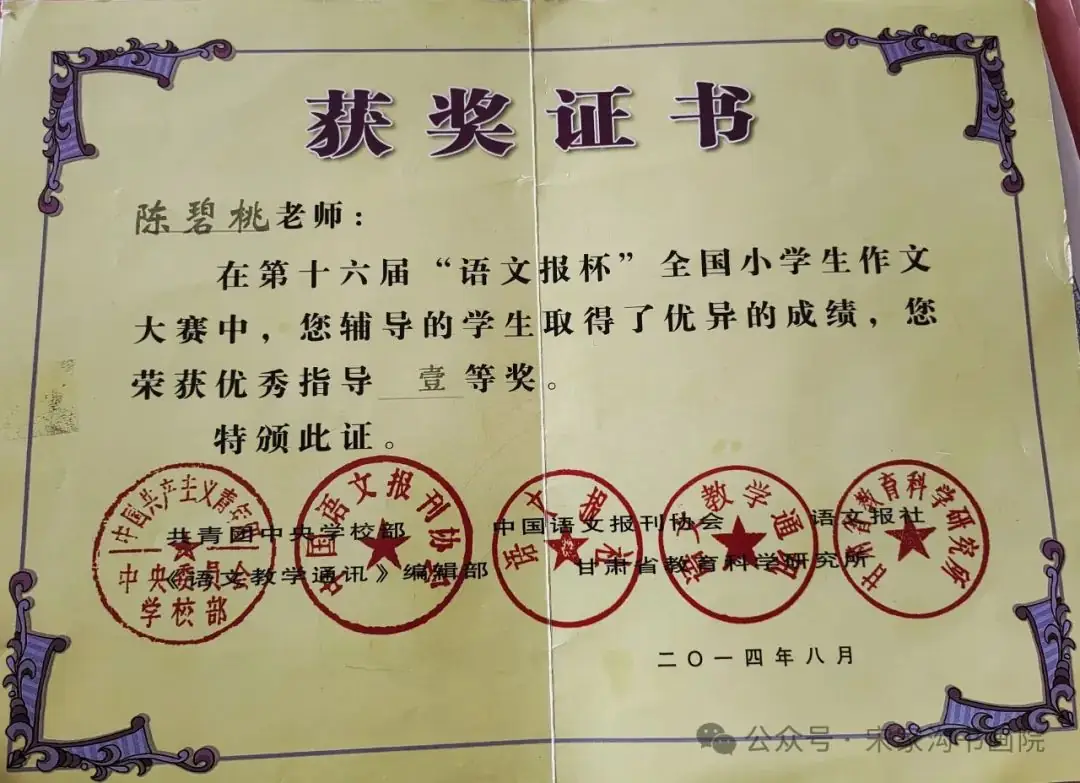 获奖证书
陈碧桃老师：
在第十六届“语文报杯”全国小学生作文
大赛中，您辅导的学生取得了优异的成绩，您
荣获优秀指导 壹 等奖。
特颁此证。
共青团中央学校部 中国语文报刊协会 语文报社
《语文教学通讯》编辑部 甘肃省教育科学研究所
中国共产主义青年团
中央委员会
学校部
中国语文报刊协会
语文报社
语文教学通讯
甘肃省教育科学研究所
二〇一四年八月
公众号·宋家沟书画院